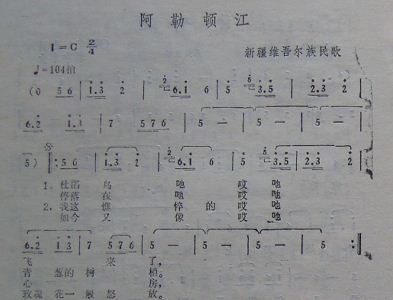 阿勒顿江
1=C 2/4
新疆维吾尔族民歌
♩=104拍
(0 5 6 | 1. 3 2 | 6. 1 6 | 5 3. 5 | 2. 3 2 |
6. 2 1. 1 | 7 5 7 6 | 5 — | 5 — | 5 — |
5) 5 6 | 1. 3 2 | 6. 1 6 | 5 3. 5 | 2. 3 2 |
1. 鸟 吔 哎 吔
停落 在 哎 吔
2. 我这 憔 悴 的 哎 吔
如今 又 像 哎 吔
6. 2 1 3 | 7 5 7 6 | 5 — | 5 — | 5 — | 5 :
飞 来 了,
青 葱的 树 梢。
心 房,
玫瑰 花一 般 怒 放。